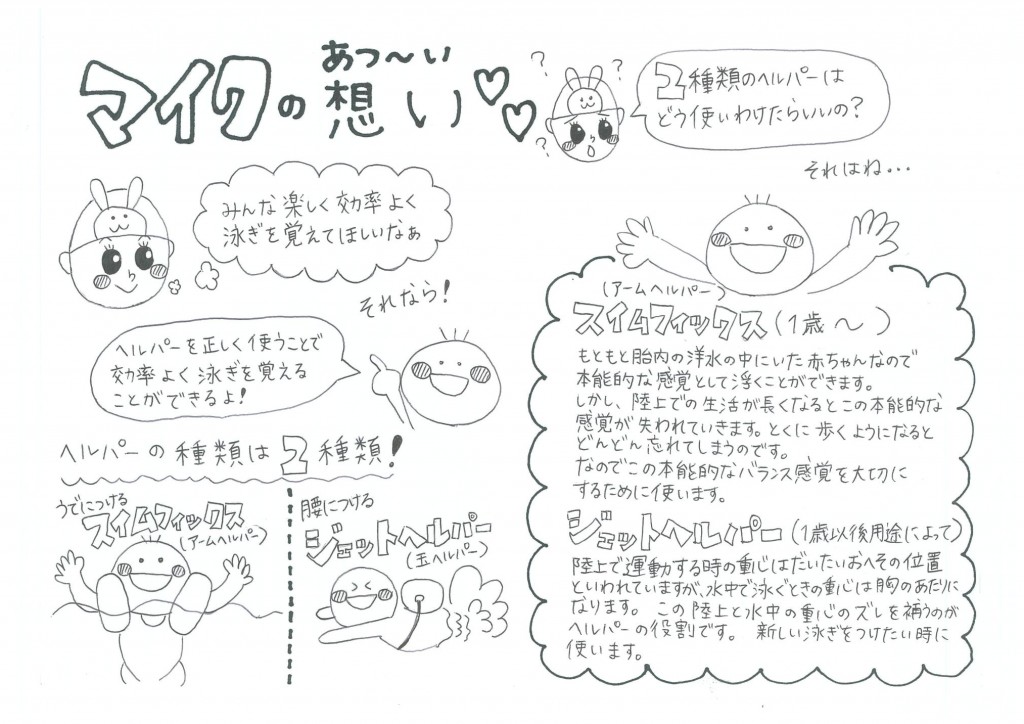 マイクの想い
あつ〜い
みんな楽しく効率よく
泳ぎを覚えてほしいなぁ
それなら!
ヘルパーを正しく使うことで
効率よく泳ぎを覚える
ことができるよ!
ヘルパーの種類は2種類!
うでにつける
スイムフィックス
(アームヘルパー)
腰につける
ジェットヘルパー
(玉ヘルパー)
? ? ? ?
2種類のヘルパーは
どう使いわけたらいいの?
それはね...
(アームヘルパー)
スイムフィックス(1歳〜)
もともと胎内の洋水の中にいた赤ちゃんなので
本能的な感覚として浮くことができます。
しかし、陸上での生活が長くなるとこの本能的な
感覚が失われていきます。とくに歩くようになると
どんどん忘れてしまうのです。
なのでこの本能的なバランス感覚を大切に
するために使います。
ジェットヘルパー(1歳以後用途によって)
陸上で運動する時の重心はだいたいおへその位置
といわれていますが、水中で泳ぐときの重心は胸のあたりに
なります。 この陸上と水中の重心のズレを補うのが
ヘルパーの役割です。 新しい泳ぎをつけたい時に
使います。